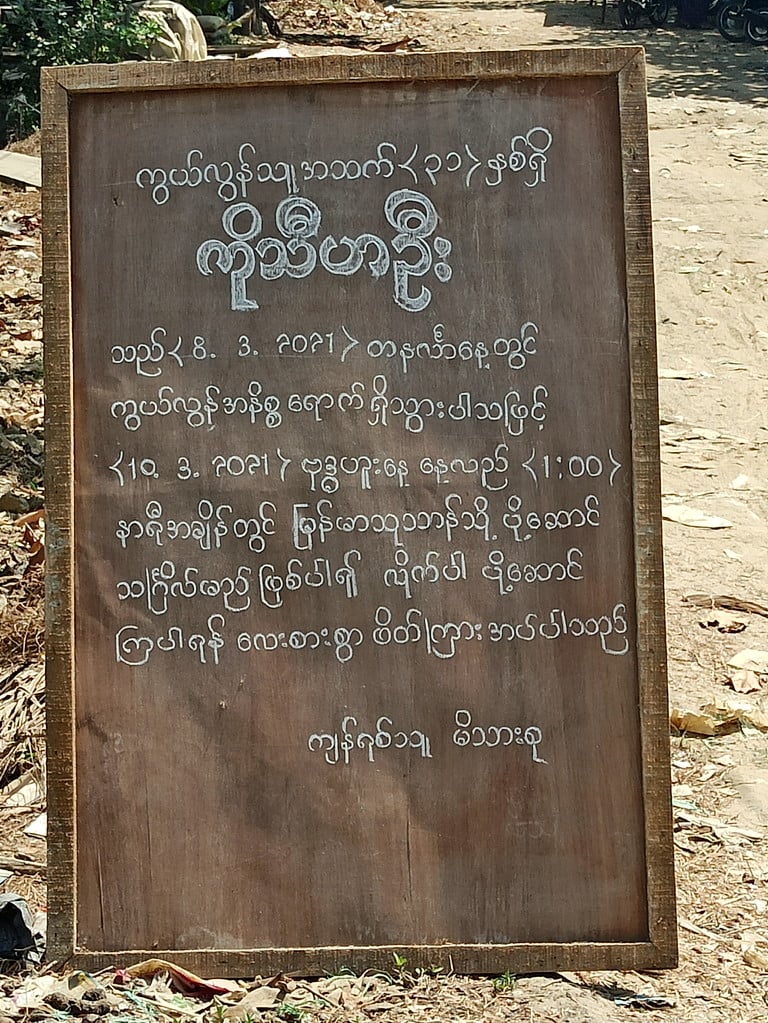 ကွယ်လွန်သူအသက်<၃၁>နှစ်ရှိ
ကိုသီဟဦး
သည်<8. 3. 2021>တနင်္လာနေ့တွင်
ကွယ်လွန်အနိစ္စ ရောက်ရှိသွားပါသဖြင့်
<10. 3. 2021> ဗုဒ္ဓဟူးနေ့ နေ့လည် <1:00>
နာရီအချိန်တွင် မြန်မာသုသာန်သို့ ပို့ဆောင်
သင်္ဂြိုလ်မည်ဖြစ်ပါ၍ လိုက်ပါ ပို့ဆောင်
ကြပါရန် လေးစားစွာ ဖိတ်ကြားအပ်ပါသည်
ကျန်ရစ်သူ မိသားစု